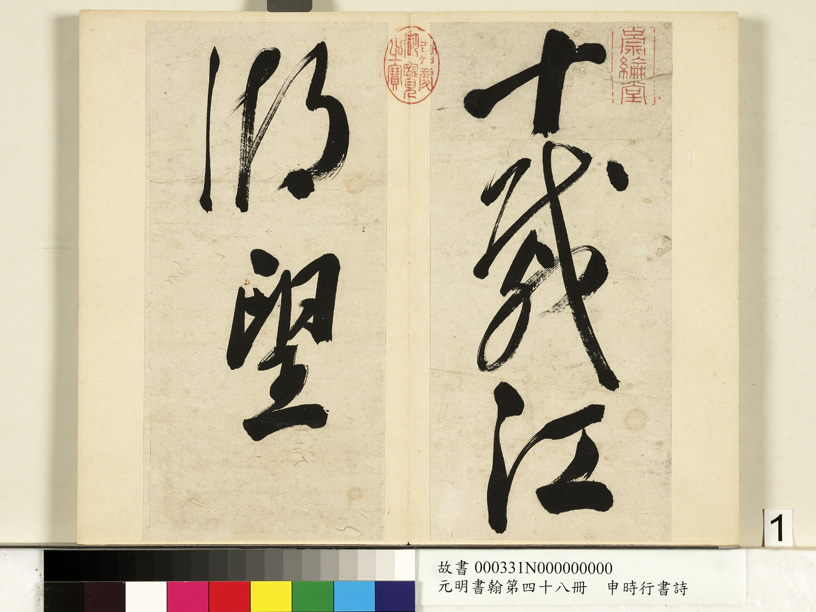 十載江
湖望
嘉慶御覽之寶
1
故書 000331N000000000
元明書翰第四十八冊 申時行書詩